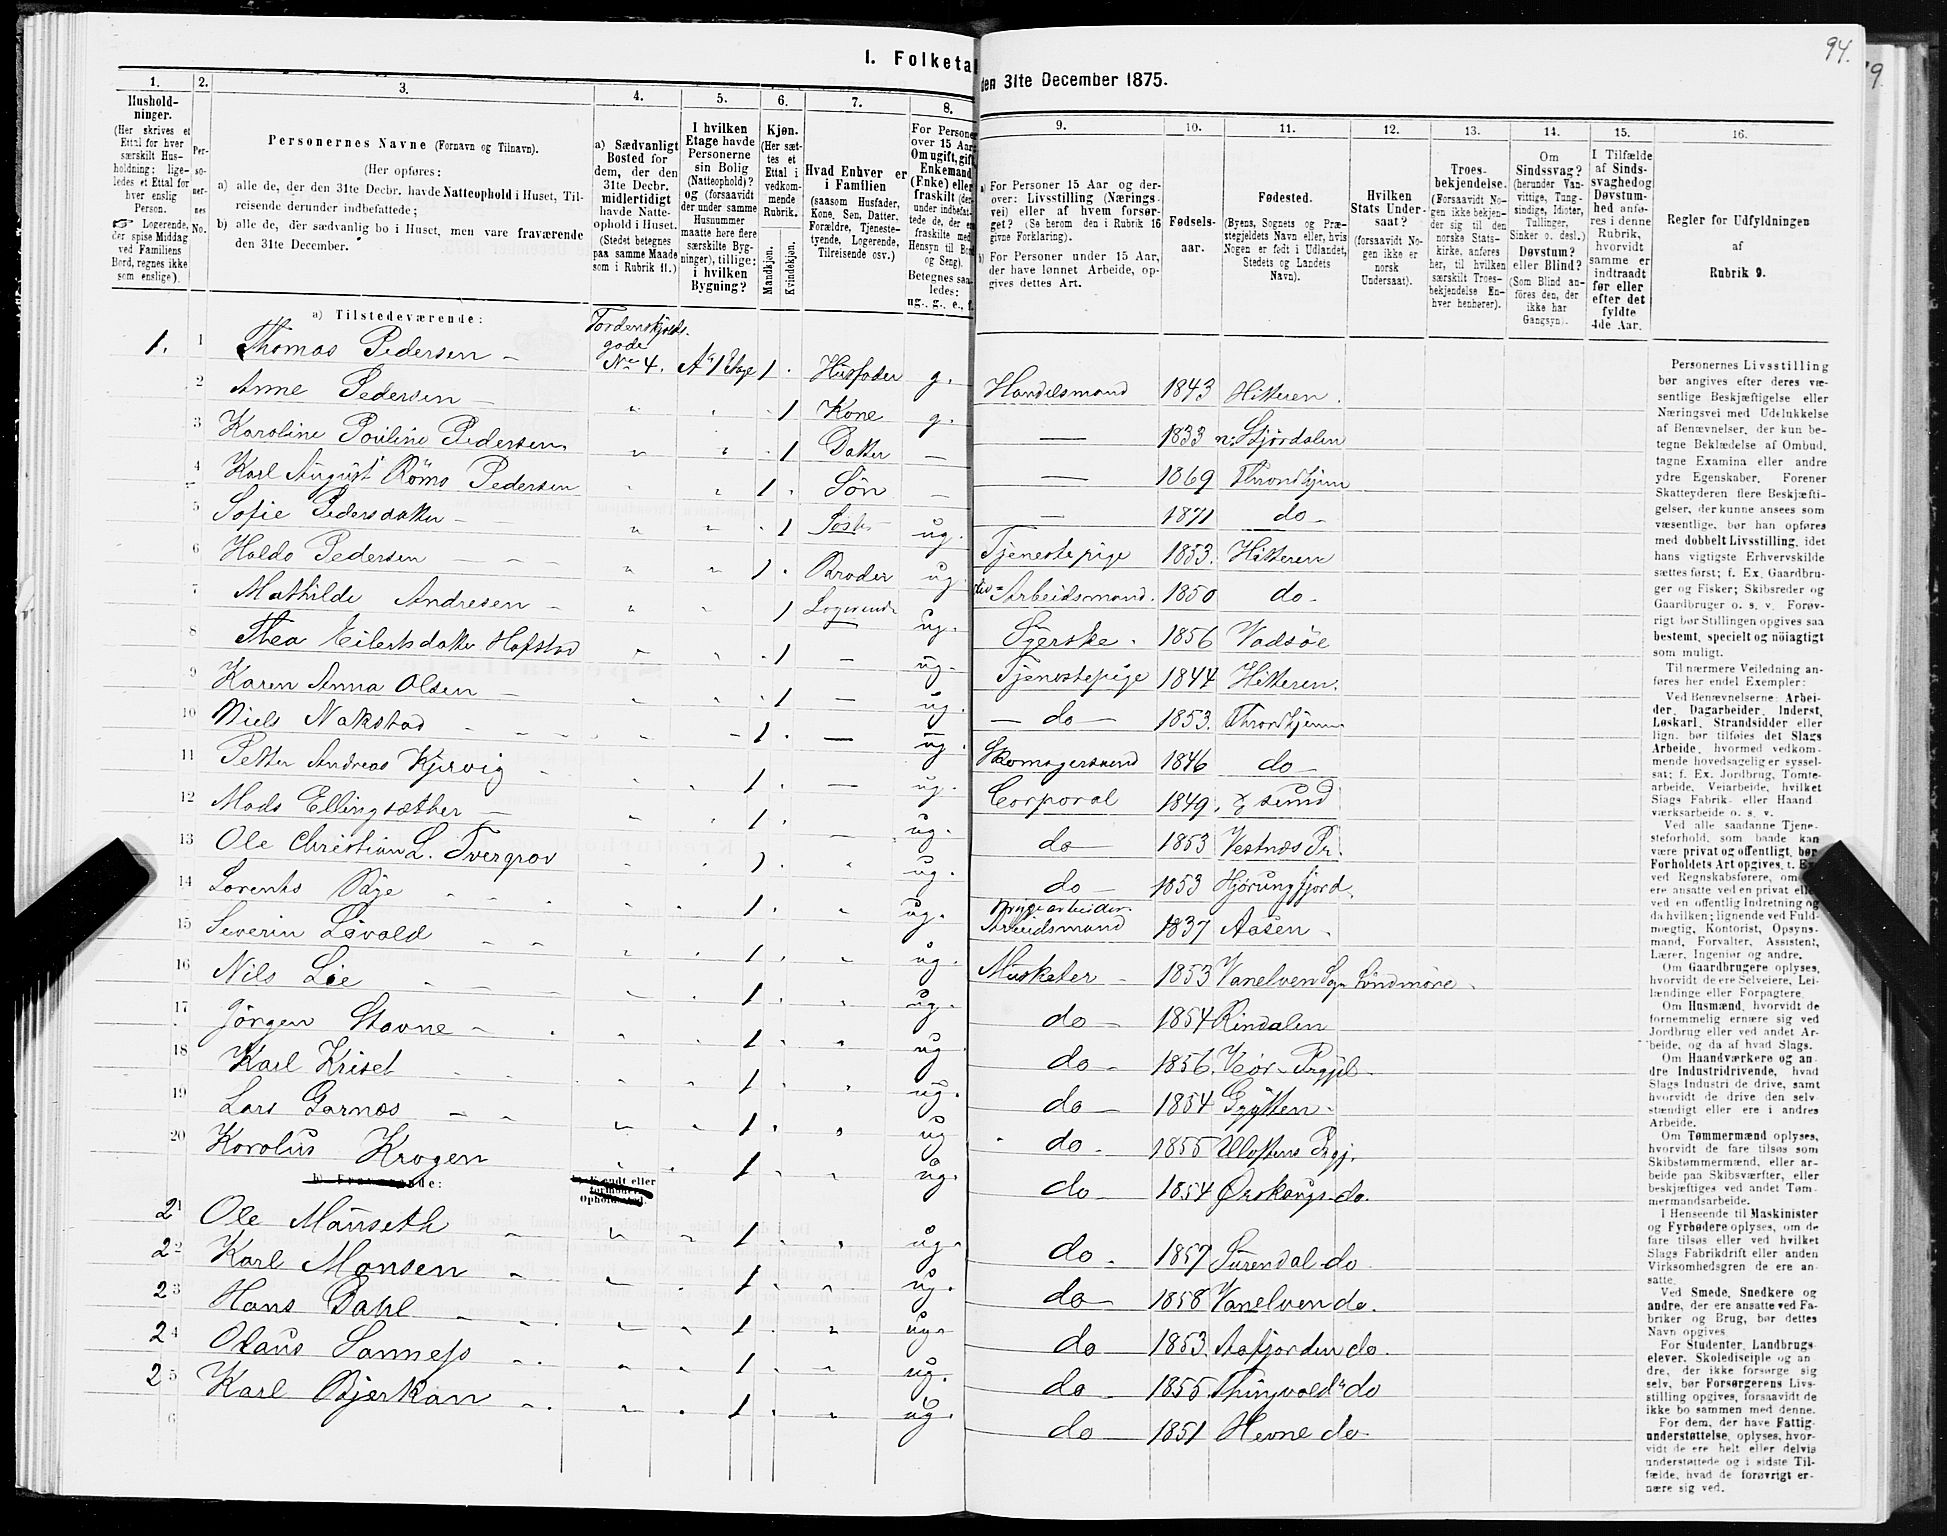 94.
9.
I. Folketal
den 31te December 1875.
1. 2. 3. 4. 5. 6. 7. 8. 9. 10. 11. 12. 13. 14. 15. 16.
Hushold-
ninger.
(Her skrives et
Ettal for hver
særskilt Hus-
holdning; lige-
ledes et Ettal for
hver enslig
Person.
☞ Logerende,
der spise Middag
ved Familiens
Bord, regnes ikke
som enslige).
Per-
so-
ner-
nes
No.
Personernes Navne (Fornavn og Tilnavn).
(Her opføres:
a) alle de, der den 31te Decbr. havde Natteophold i Huset, Til-
reisende derunder indbefattede;
b) alle de, der sædvanlig bo i Huset, men vare fraværende
den 31te December.
a) Sædvanligt
Bosted for
dem, der den
31te Decbr.
midlertidigt
havde Natte-
ophold i Huset.
(Stedet betegnes
paa samme Maade
som i Rubrik 11.)
I hvilken
Etage havde
Personerne
sin Bolig
(Natteophold)?
og (forsaavidt
der under samme
Husnummer
maatte høre flere
særskilte Byg-
ninger), tillige:
i hvilken
Bygning?
Kjøn.
(Her sæt-
tes et
Ettal i
vedkom-
mende
Rubrik.
Mandkjøn.
Kvindekjøn.
Hvad Enhver er
i Familien
(saasom Husfader,
Kone, Søn, Datter,
Forældre, Tjeneste-
tyende, Logerende,
Tilreisende osv.)
For Personer
over 15 Aar:
Om ugift, gift,
Enkemand
(Enke) eller
fraskilt (der-
under indbefat-
tede de, der ere
fraskilte med
Hensyn til Bord
og Seng).
Betegnes saa-
ledes:
ug., g., e., f.
a) For Personer 15 Aar og der-
over: Livsstilling (Nærings-
vei) eller af hvem forsør-
get? (Se herom den i Rubrik 16
givne Forklaring).
b) For Personer under 15 Aar,
der have lønnet Arbeide, op-
gives dettes Art.
Fødsels-
aar.
Fødested.
(Byens, Sognets og Præ-
stegjeldets Navn eller, hvis
Nogen er født i Udlandet,
Stedets og Landets
Navn).
Hvilken
Stats Under-
saat?
(forsaavidt No-
gen ikke er
norsk
Undersaat).
Troes-
bekjendelse.
(Forsaavidt No-
gen ikke bekjen-
der sig til den
norske Stats-
kirke, anføres
her, til hvilken
særskilt Troes-
bekjendelse En-
hver henhører).
Om
Sindssvag?
(herunder Van-
vittige, Tung-
sindige, Idioter,
Tullinger,
Sinker o. desl.)
Døvstum?
eller Blind?
(Som Blind an-
føres den, der
ikke har
Gangsyn).
I Tilfælde
af Sinds-
svaghed og
Døvstum-
hed anfø-
res i denne
Rubrik,
hvorvidt
samme er
indtraadt
før eller
efter det
fyldte
4de Aar.
Regler for Udfyldningen
af
Rubrik 9.
a) Tilstedeværende:
Tordenskjolds
gade
1. 1 Thomas Pedersen - No 4. A 1 Etage 1 . Husfader g. Handelsmand 1843 Hitteren.
2 Anne Pedersen - " " . 1 Kone g. — 1833 n: Stjørdalen
3 Karoline Pouline Pedersen " " . 1 Datter — — 1869 Throndhjem
4 Karl August Röms Pedersen " " 1 . Søn — — 1871 do -
5 Sofie Pedersdatter - " " . 1 Søster ug. Tjenestepige 1853. Hitteren
6 Haldo Pedersen - - - " " 1 . Broder ug. Arbeidsmand. 1850 do-
7 Mathilde Andresen - " " 1 Logerende ug. Syerske. 1856 Vadsøe
8 Thea Eilertsdatter Hafstad " " . 1 — ug. Tjenestepige 1844 Hitteren.
9 Karen Anna Olsen - " " . 1 — ug. — do — 1853. Throndhjem
10 Niels Nakstad - - - " - 1 . — ug. Skomagersvend 1846 do -
11 Petter Andreas Kjervig - " 1 . — ug. Corporal 1849. sund
12 Mads Ellingsæther - " " 1 . — ug. do — 1853 Vestnæs Pr.
13 Ole Christian L. Tvergrov " " 1 . " ug. do — 1853 Hjørungfjord.
Brygearbeider
14 Lorents Bye - - - " " 1 . " ug. Arbeidsmand 1837 Aasen -
15 Severin Lövold - - " " 1 . " ug. Musketer - 1853 Vanelven Søndmøre -
16 Nils Lie - - - " " 1 . " ug. do — 1854 Rindalen
17 Jörgen Stavne - . " " 1 . " ug do - 1856.
18 Karl Kriset - - " " 1 . " ug. do — 1854 Grytten -
19 Lars Garnæs - - " " 1 . " ug do - 1855 Prgj.
20 Karolus Krogen " . 1 . " ug. do — 1854 Ørskougs do.
b) Fraværende:
b) Kjendt eller
formodet
Opholdssted.
21 Ole Mänseth - " " 1 . " ug. do - 1857 Surendal do
22 Karl Monsen - " . 1 . " ug. do — 1858 Vanelven do.
23 Hans Dahl - - . " " 1 . " ug. do 1853. Aafjorden do.
24 Olaus Sanness - . " " 1 . " ug. do — 1855 Thingvold do
25 Karl Bjerkan - . " . 1 . " ug. do 1851 Hevne do
6
Personernes Livsstilling
bør angives efter deres væ-
sentlige Beskjæftigelse eller
Næringsvei med Udelukkelse
af Benævnelser, der kun be-
tegne Beklædelse af Ombud,
tagne Examina eller andre
ydre Egenskaber. Forener
Skatteyderen flere Beskjæfti-
gelser, der kunne ansees som
væsentlige, bør han opføres
med dobbelt Livsstilling, idet
hans vigtigste Erhvervskilde
sættes først; f. Ex. Gaardbru-
ger og Fisker; Skibsreder og
Gaardbruger o. s. v. Forøv-
rigt bør Stillingen opgives saa
bestemt, specielt og nöiagtigt
som muligt.
Til nærmere Veiledning an-
føres her endel Exempler:
Ved Benævnelserne: Arbei-
der, Dagarbeider, Inderst,
Løskarl, Strandsidder eller
lign. bør tilføies det Slags
Arbeide, hvormed vedkom-
mende hovedsagelig er syssel-
sat; f. Ex. Jordbrug, Tomte-
arbeide, Veiarbeide, hvilket
Slags Fabrik- eller Haand-
værksarbeide o. s. v.
Ved alle saadanne Tjene-
steforhold, som baade kan
være privat og offentligt, bør
Forholdets Art opgives, f. Ex.
ved Regnskabsførere, om de
ere ansatte ved en privat eller
ved en offentlig Indretning og
da hvilken; lignende ved Fuld-
mægtig, Kontorist, Opsyns-
mand, Forvalter, Assistent,
Lærer, Ingeniør og andre.
Om Gaardbrugere oplyses,
hvorvidt de ere Selveiere, Lei-
lændinge eller Forpagtere.
Om Husmænd, hvorvidt de
fornemmelig ernære sig ved
Jordbrug eller ved andet Ar-
beide, og da af hvad Slags.
Om Haandværkere og an-
dre Industridrivende, hvad
Slags Industri de drive, samt
hvorvidt de drive den selv-
stændigt eller ere i andres
Arbeide.
Om Tømmermænd oplyses,
hvorvidt de fare tilsøs som
Skibstømmermænd, eller ar-
beide paa Skibsværfter, eller
beskjæftiges ved andet Tøm-
mermandsarbeide.
I Henseende til Maskinister
og Fyrbødere oplyses, om de
fare tilsøs eller ved hvilket
Slags Fabrikdrift eller anden
Virksomhedsgren de ere an-
satte.
Ved Smede, Snedkere og
andre, der ere ansatte ved Fa-
briker og Brug, bør dettes
Navn opgives
For Studenter, Landbrugs-
elever, Skoledisciple og an-
dre, der ikke forsørge sig
selv, bør Forsørgerens Livs-
stilling opgives, forsaavidt de
ikke bo sammen med denne.
For dem, der have Fattig-
understøttelse, oplyses, hvor-
vidt de ere helt eller delvis
understøttede og i sidste Til-
fælde, hvad de forøvrigt er-
nære sig ved.